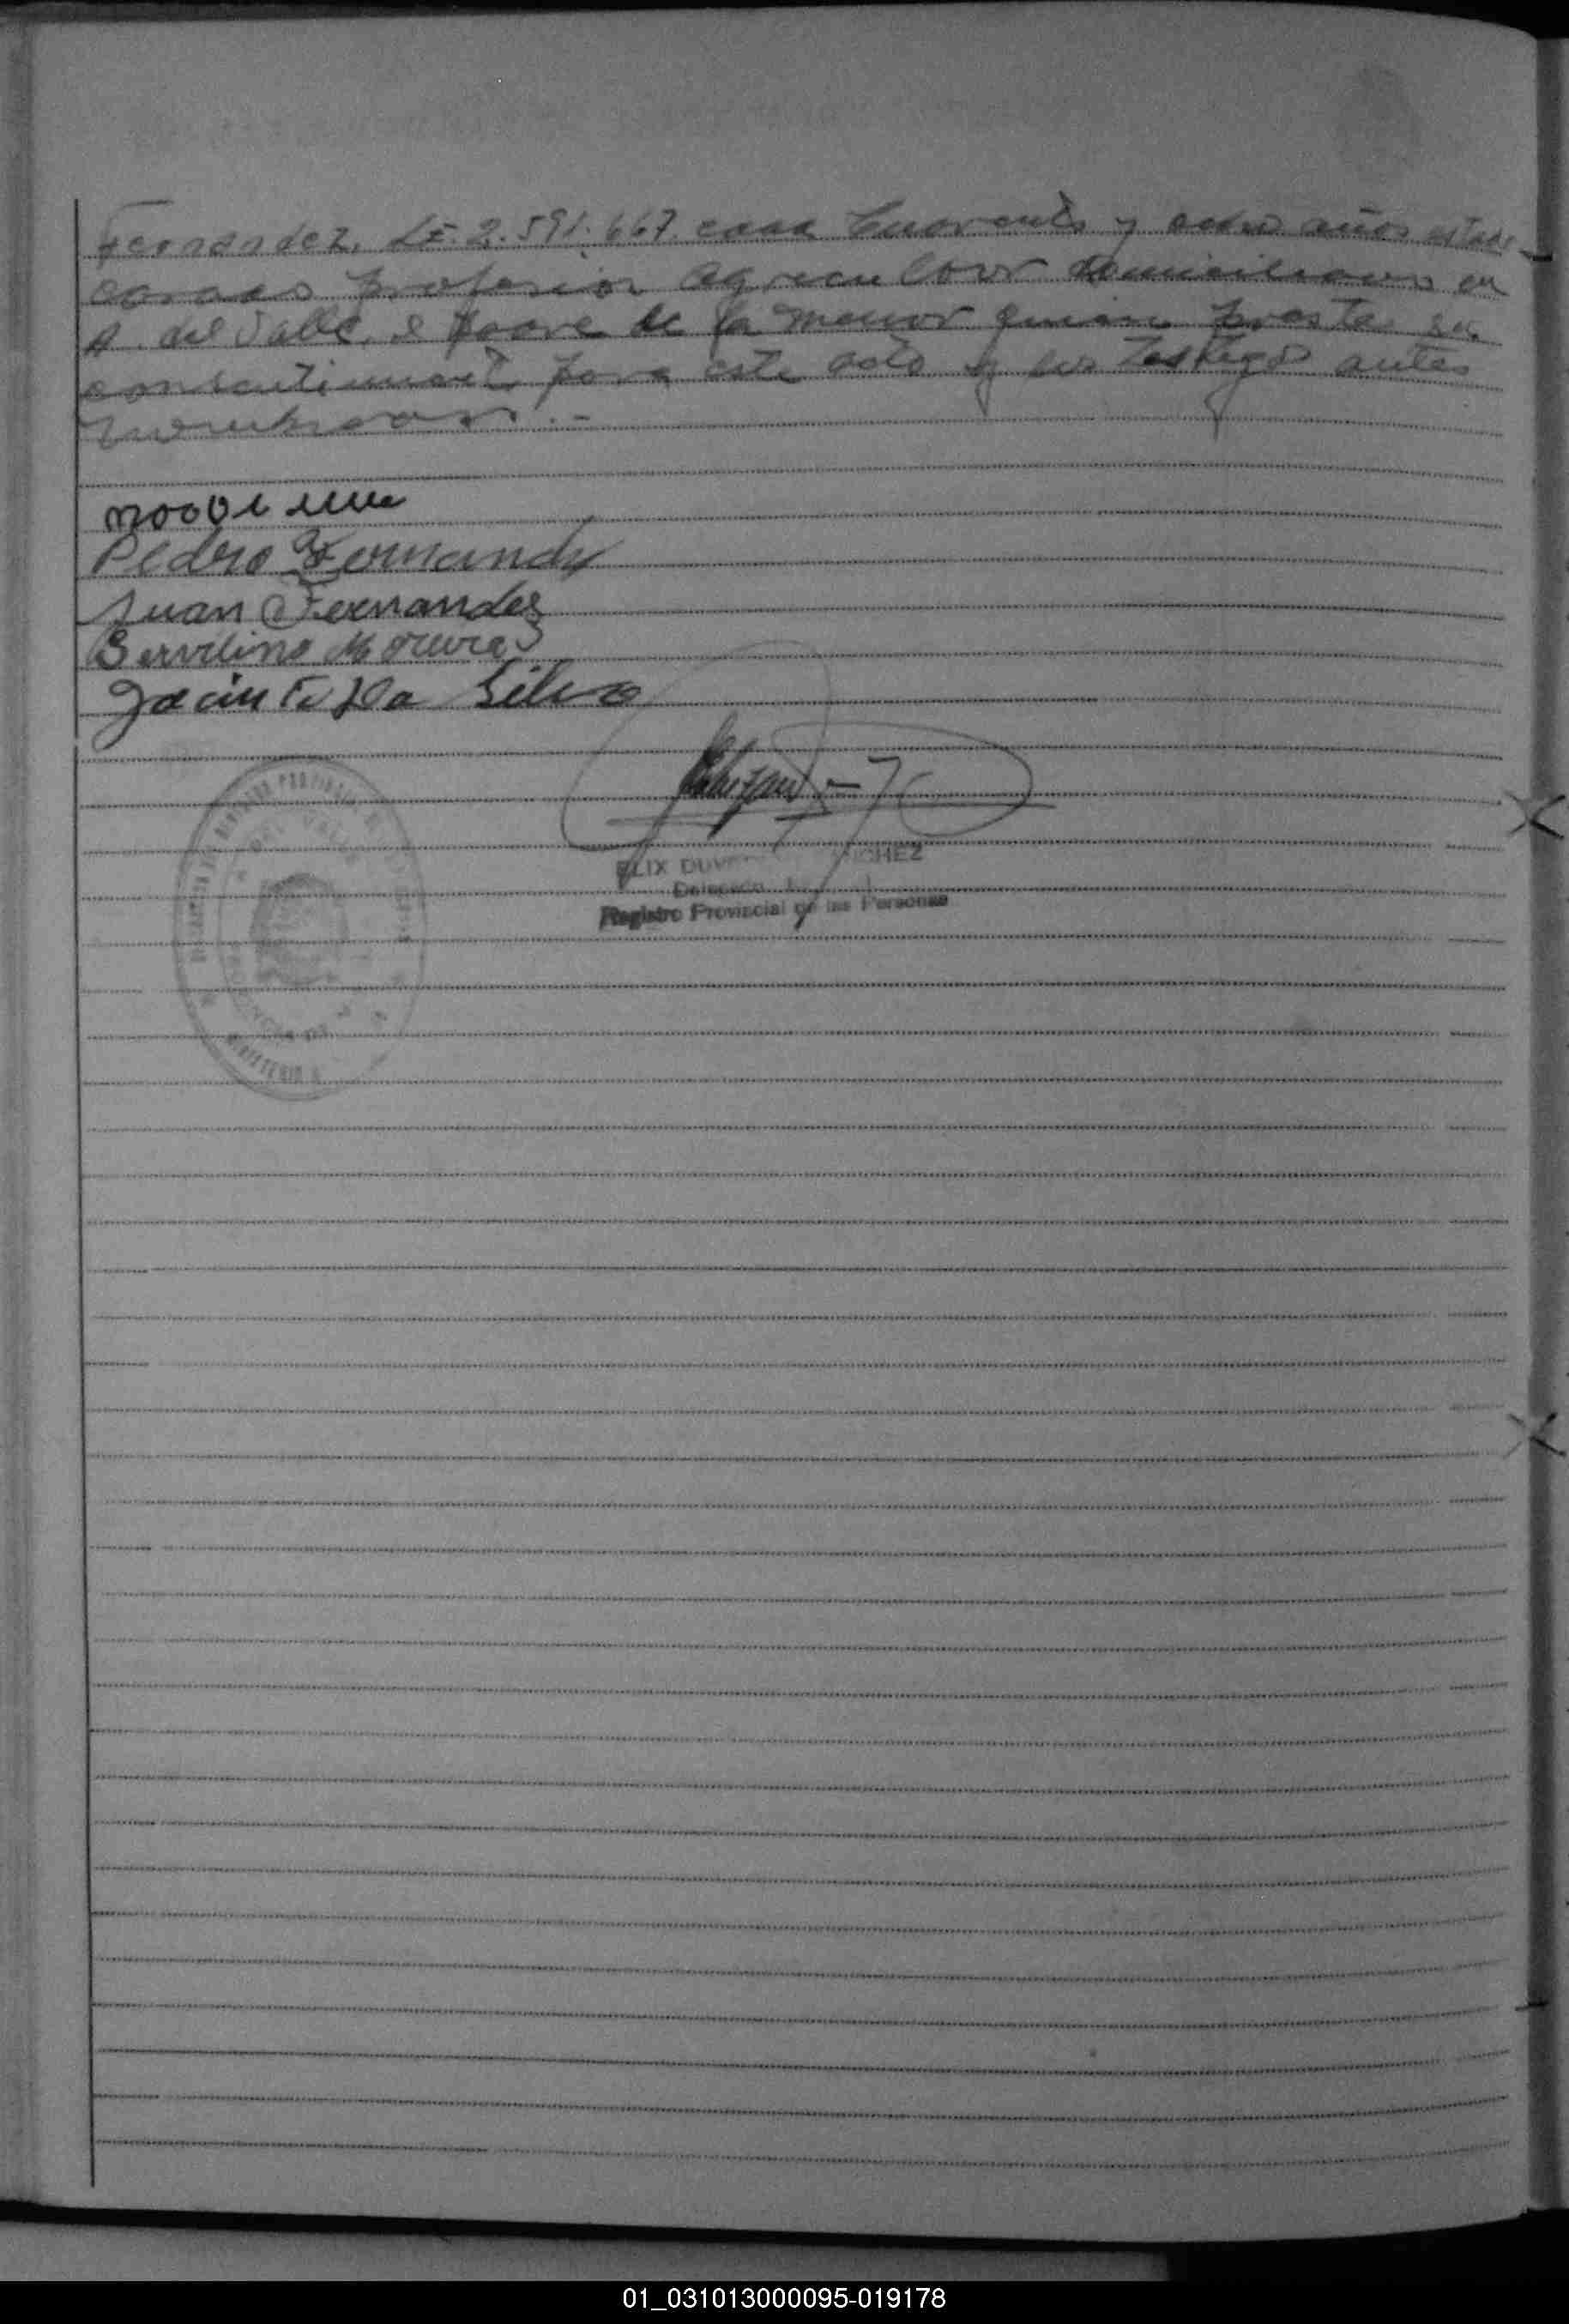 Fernandez. LE. 2.591.667. edad cuarenta y ocho años estado
casado profesion agricultor domiciliado en
A. del Valle, padre de la menor quien presta su
consentimiento para este acto y los testigos antes
nombrados. -
Pedro Fernandez
Juan Fernandes
Servilino Moreira
Jacinto Da Silva
FELIX DUV SANCHEZ
Delegado
Registro Provincial de las Personas
DEL VALLE
MINISTERIO
01_031013000095-019178